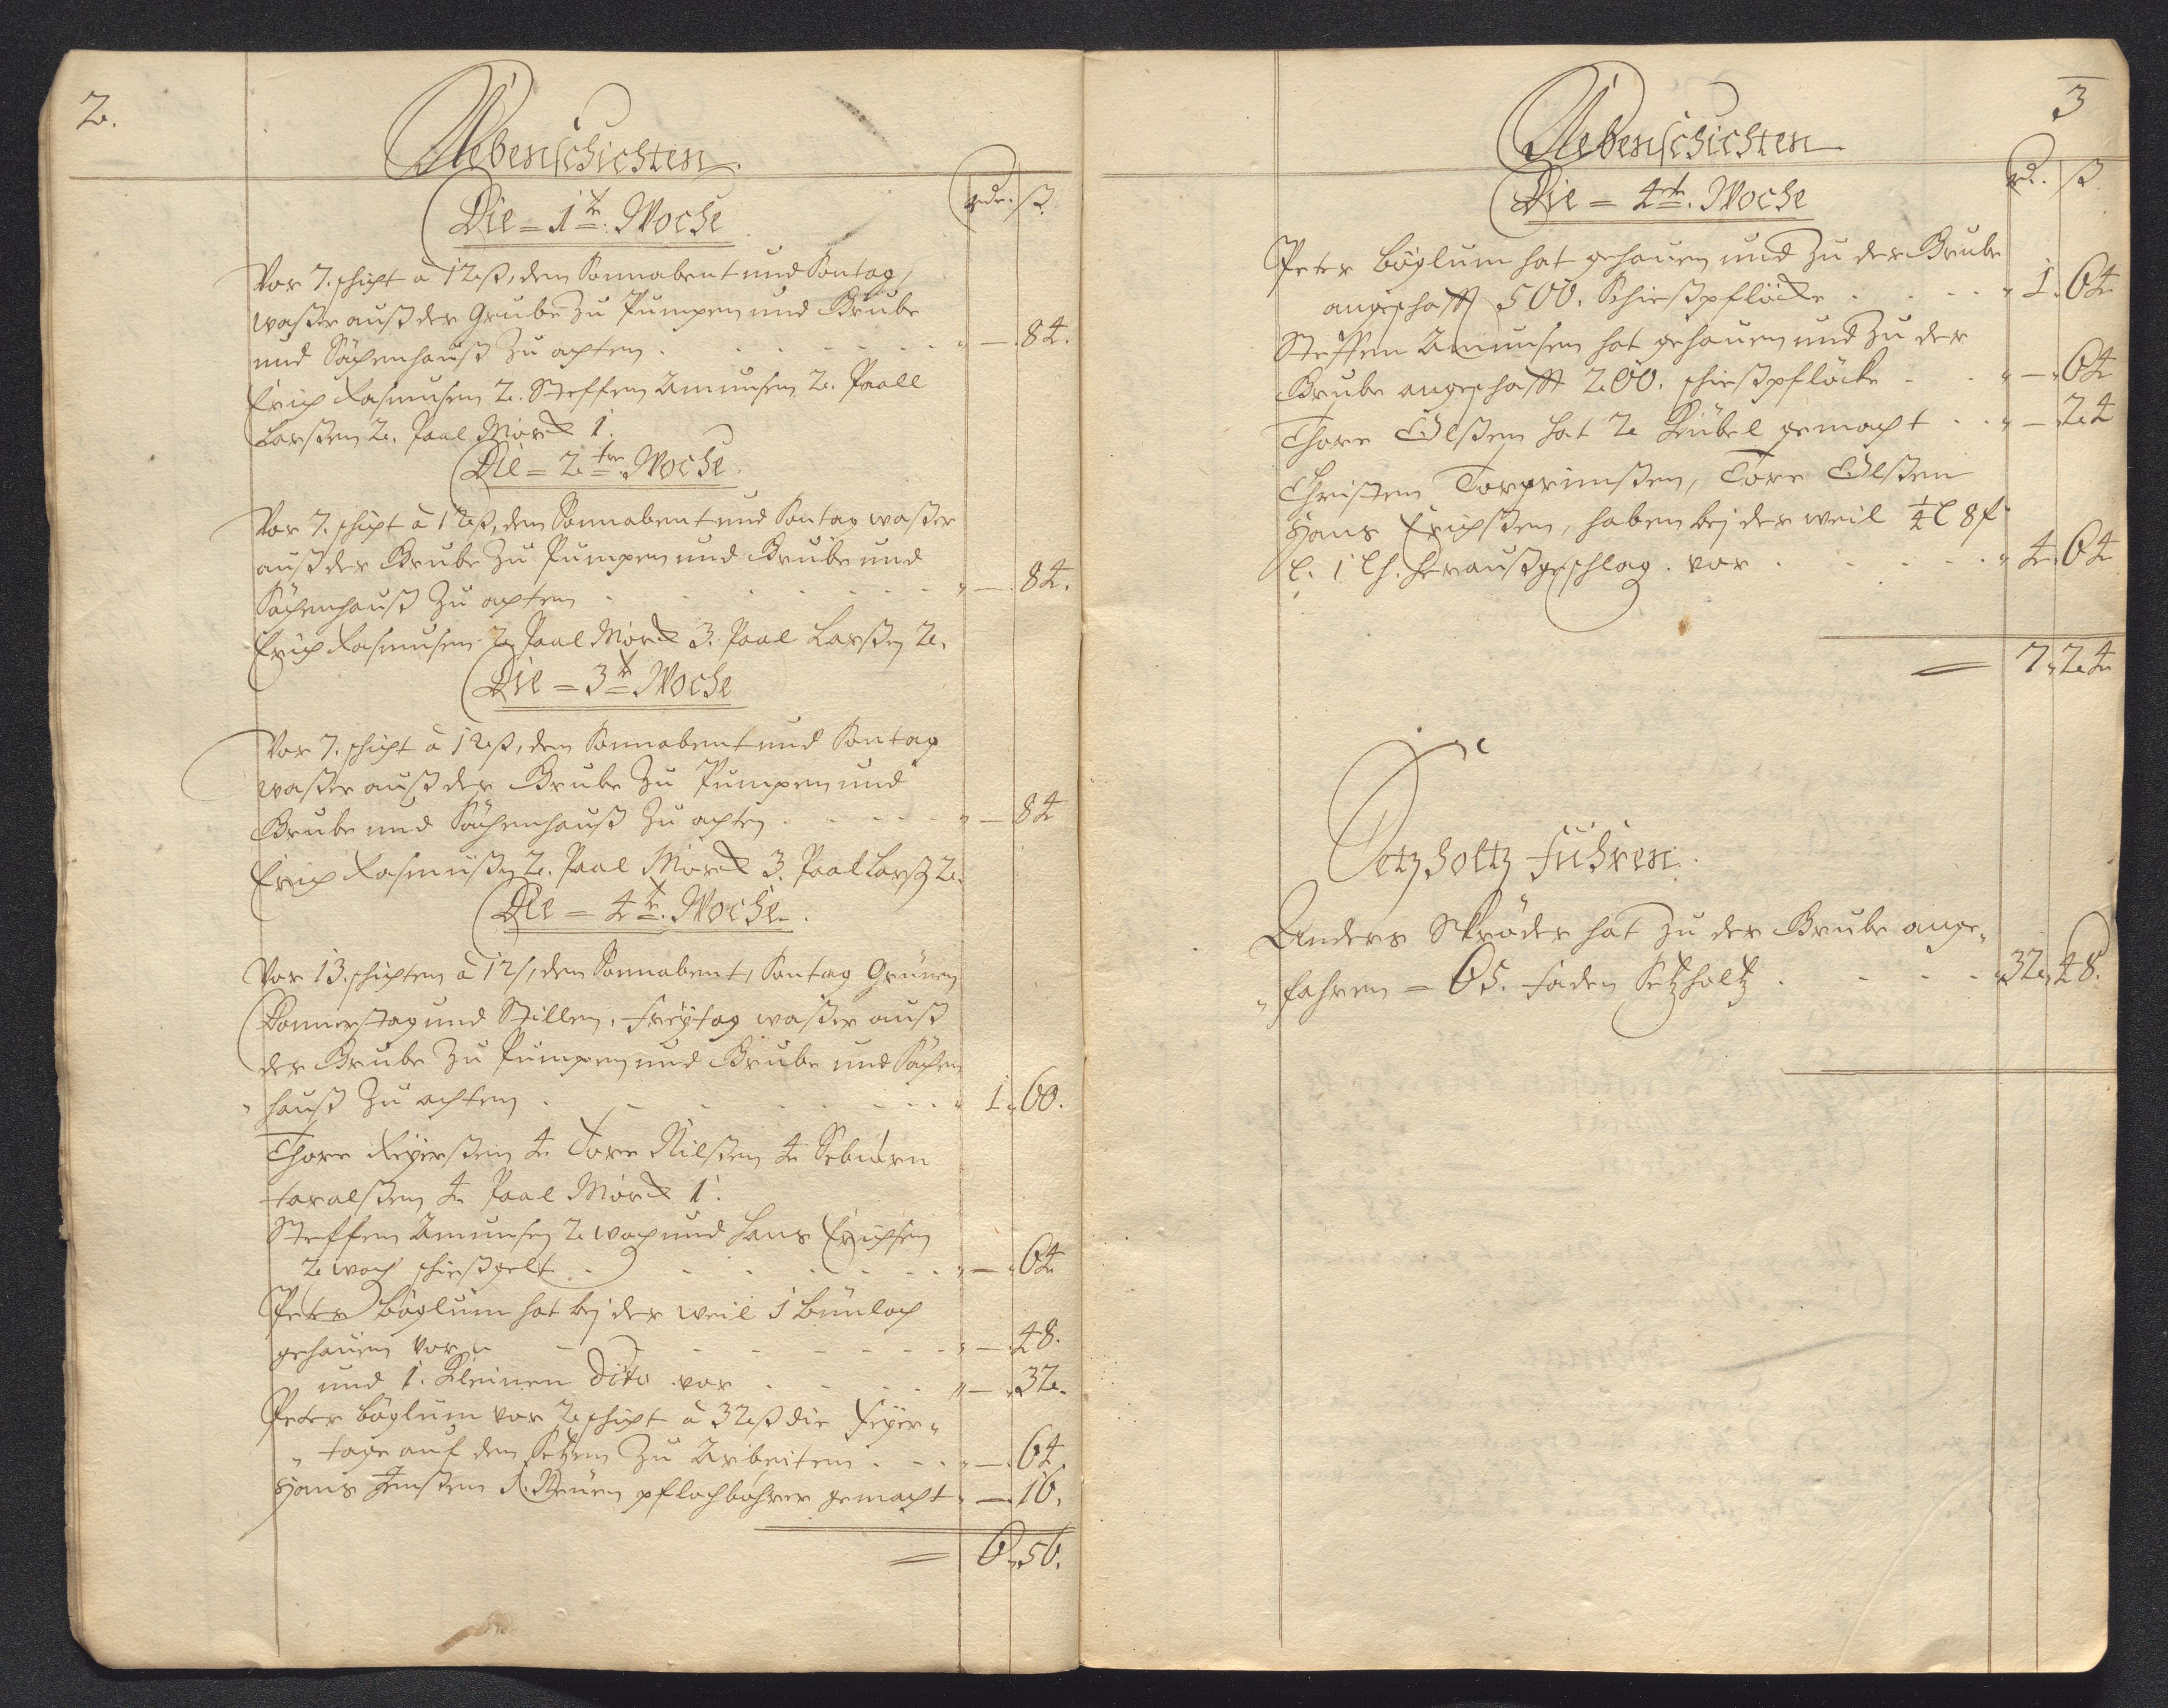 2.
Nebenschichten.
rdr. ß.
Die = 1te: Woche
Vor 7. schicht â 12 ß, den Sonnabent und Sontag,
waßer auß der Grube zu Pumpen und Grube
und Sächenhauß zu achten . . . . . . . " — . 84.
Erich Rasmusen 2. Steffen Amunsen 2. Paall
Larßen 2. Paal Mörck 1.
Die = 2te Woche.
Vor 7. schicht â 12 ß, den Sonnabent und Sontag waßer
auß der Grube zu Pumpen und Grube und
Sächenhauß zu achten . . . . . . . " — . 84.
Erich Rasmusen 2. Paal Mörck 3. Paal Larßen 2.
Die = 3te Woche
Vor 7. schicht â 12 ß, den Sonnabent und Sontag
waßer auß der Grube zu Pumpen und
Grube und Sächenhauß zu achten . . . . . " — 84
Erich Rasmußen 2. Paal Mörck 3. Paal Larß 2.
Die = 4te. Woche.
Vor 13. schichten â 12 ß, den Sonnabent, Sontag Grünen
Donnerstag und Stillen, Freÿtag waßer auß
der Grube zu Pumpen und Grube und Sächen
" hauß zu achten . . . . . . . " 1 " 60.
Thore Reÿerßen 4 Tore Nilßen 4 Sebiörn
taralßen 4 Paal Mörck 1.
Steffen Amunsen 2 woch und Hans Erichsen
2 woch schießgelt . . . . . . . " — " 64
Peter Böglum hat beÿ der weil 1 Bünloch
gehauen vor . . . . . . . " — . 48.
und 1. Kleinen dito vor . . . . " — " 32.
Peter Böglum vor 2 schicht â 32 ß die Feÿer"
" tage auf den Setzen zu Arbeiten . . . " — . 64.
Hans Jenßen 1. Neüen pflochbohrer gemacht " — 16.
= 6 " 56.
3
Nebenschichten
rd. ß
Die = 4te. Woche
Peter Böglum hat gehauen und zu der Grube
angeschafft 500. Schießpflöcke . . . . " 1 . 64
Steffen Amunsen hat gehauen und zu der
Grube angeschafft 200. schießpflöcke . . " — " 64
Thore Olßen hat 2 Kübel gemacht . . " — 24
Christen Torgrimßen, Tore Olßen
Hans Erichßen, haben beÿ der weil 1/4 l 8 f
l. 1 lh. heraußgeschlag. vor . . . . . " 4 . 64
= 7 " 24
Setzholtz Führen.
Anders Skröder hat zu der Grube ange"
" fahren = 65. Faden Setzholtz . . . . . " 32 " 48.